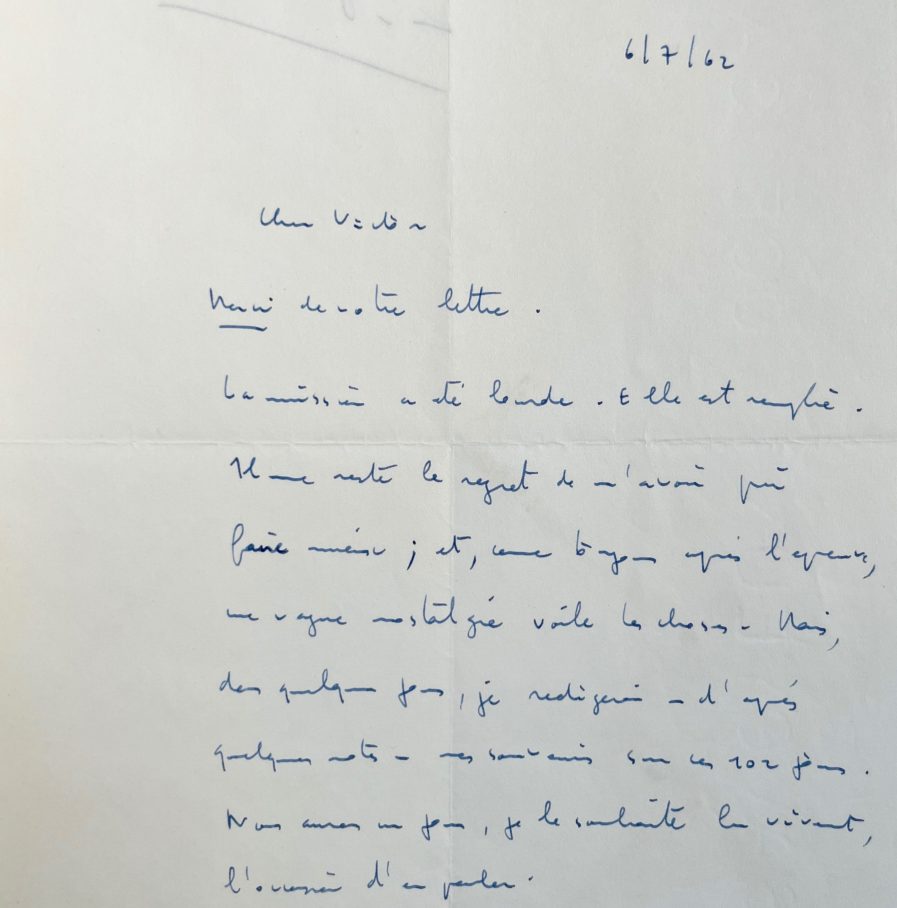 6/7/62
Cher Victor
Merci de votre lettre.
La mission a été lourde. Elle est remplie.
Il me reste le regret de n'avoir pu
faire mieux ; et, comme toujours après l'épreuve,
une vague nostalgie voile les choses. Mais,
dans quelques jours, je rédigerai - d'après
quelques notes - mes souvenirs sur ces 102 jours.
Nous aurons un jour, je le souhaite vivement,
l'occasion d'en parler.